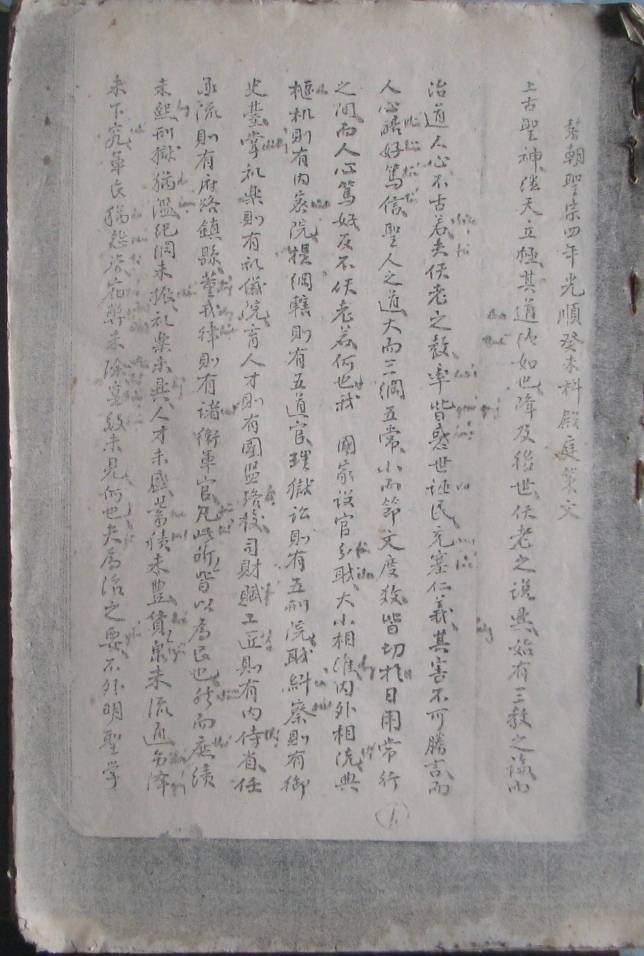 黎朝聖宗四年光順癸未科殿庭策文
上古聖神繼天立極其道一如也降及後世佚老之說興始有三教之論而
治道人心不古若夫佚老之教率皆惑世誣民充塞仁義其害不可勝言而
人心酷好篤信聖人之道大而三綱五常小而節文度數皆切於日用常行
之間而人心篤好反不佚老若何也我 國家設官分耺大小相維內外相統典
樞机則有內密院提綱轄則有五道官理獄訟則有五刑院耺糾察則有御
史臺掌礼樂則有礼儀院育人才則有國監路校司財賦工匠則有內侍省任
承流則有府路鎮縣董戎律則有諸衛軍官凡此所皆以為民也然而庶績
未熙刑獄猶濫紀綱未振礼樂未興人才未盛蓄積未豐貨泉未流通
未下究軍民猶怨咨花弊未除寔效未見何也夫為治之要不外明聖學